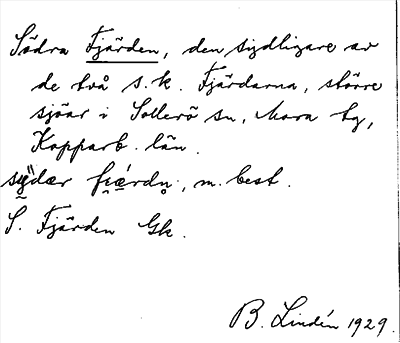 Södra Fjärden, den sydligare av
de två s.k. Fjärdarna, större
sjöar i Sollerö sn, Mora tg,
Kopparb. län.
m. best.
S. Fjärden Gk.
B. Lindén 1929.